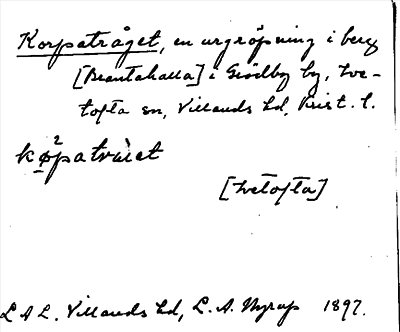 Korpatråget, en urgröpning i berg
[Brantahalla] i Grödby by, Ive-
tofta sn, Villands hd, Krist. l.
kø²patràet
[Ivetofta]
L A L. Villands hd, L. A. Nyrup 1897.